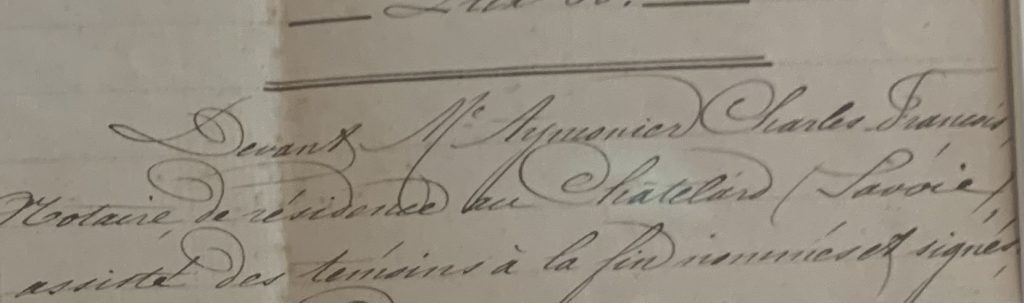 Devant Mᵉ Aymonier Charles François,
Notaire de résidence au Châtelard (Savoie)
assisté des témoins à la fin nommés et signés,